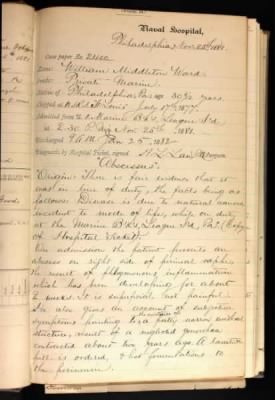 Naval Hospital,
Philadelphia Nov 25th 1881.
Case paper No
Name William Middleton Ward
Private Marine
Native of Philadelphia Pa age 30 years
July 17th 1877
Admitted from U.S. Marine B'ks League I'd
at 2.30 P.M. Nov 25th 1881.
Discharged 9 A.M. Jan 25 1882
Diagnosis by Hospital Ticket, signed Surgeon
"Abscessus"
Origin: There is four evidence that it
was in line of duty, the facts being as
follows: Disease is due to natural causes
incident to mode of life, while on duty,
at the Marine B'ks League I'd, Pa. (Copy
of Hospital Ticket)
On admission the patient presents an
abscess on right side of perineal raphe,
the result of phlegmonous inflammation
which has been developing for about
weeks. It is superficial not painful.
He also gives an account of subjective
symptoms pointing to a pretty narrow urethral
stricture, result of a neglected gonorrhoea
contracted about two years ago. A
is ordered, & hot fomentations to
the perineum.